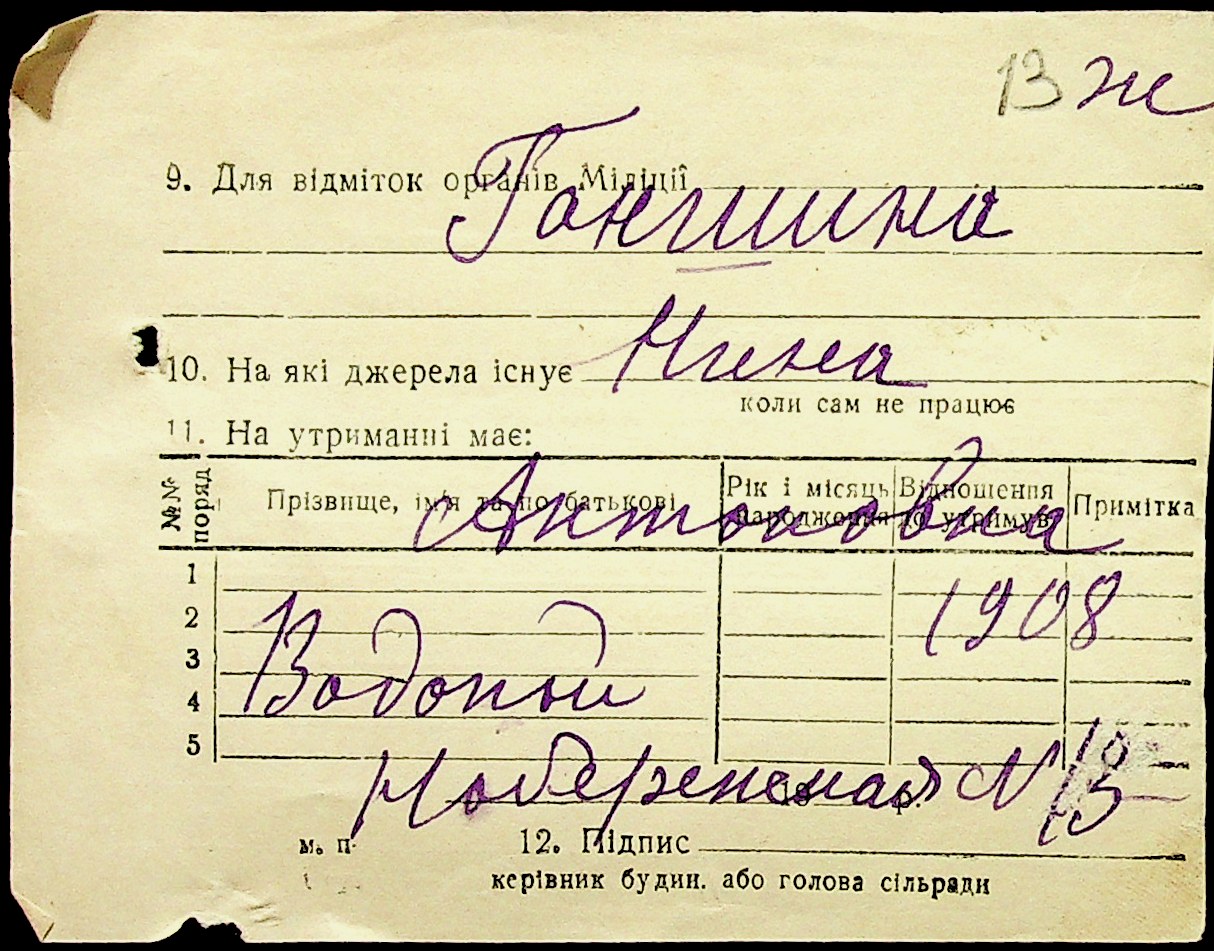 13 ж
9. Для відміток органів Міліції
Ганшина
10. На які джерела існує
Нина
коли сам не працює
11. На утриманні має:
№№ поряд
Прізвище, ім'я та по батькові
Рік і місяць народження
Відношення до утримув.
Примітка
Антоновна
1
1908
2
3
Водопой
4
5
Набережная N 13
19 р.
м. п.
12. Підпис
керівник будин. або голова сільради